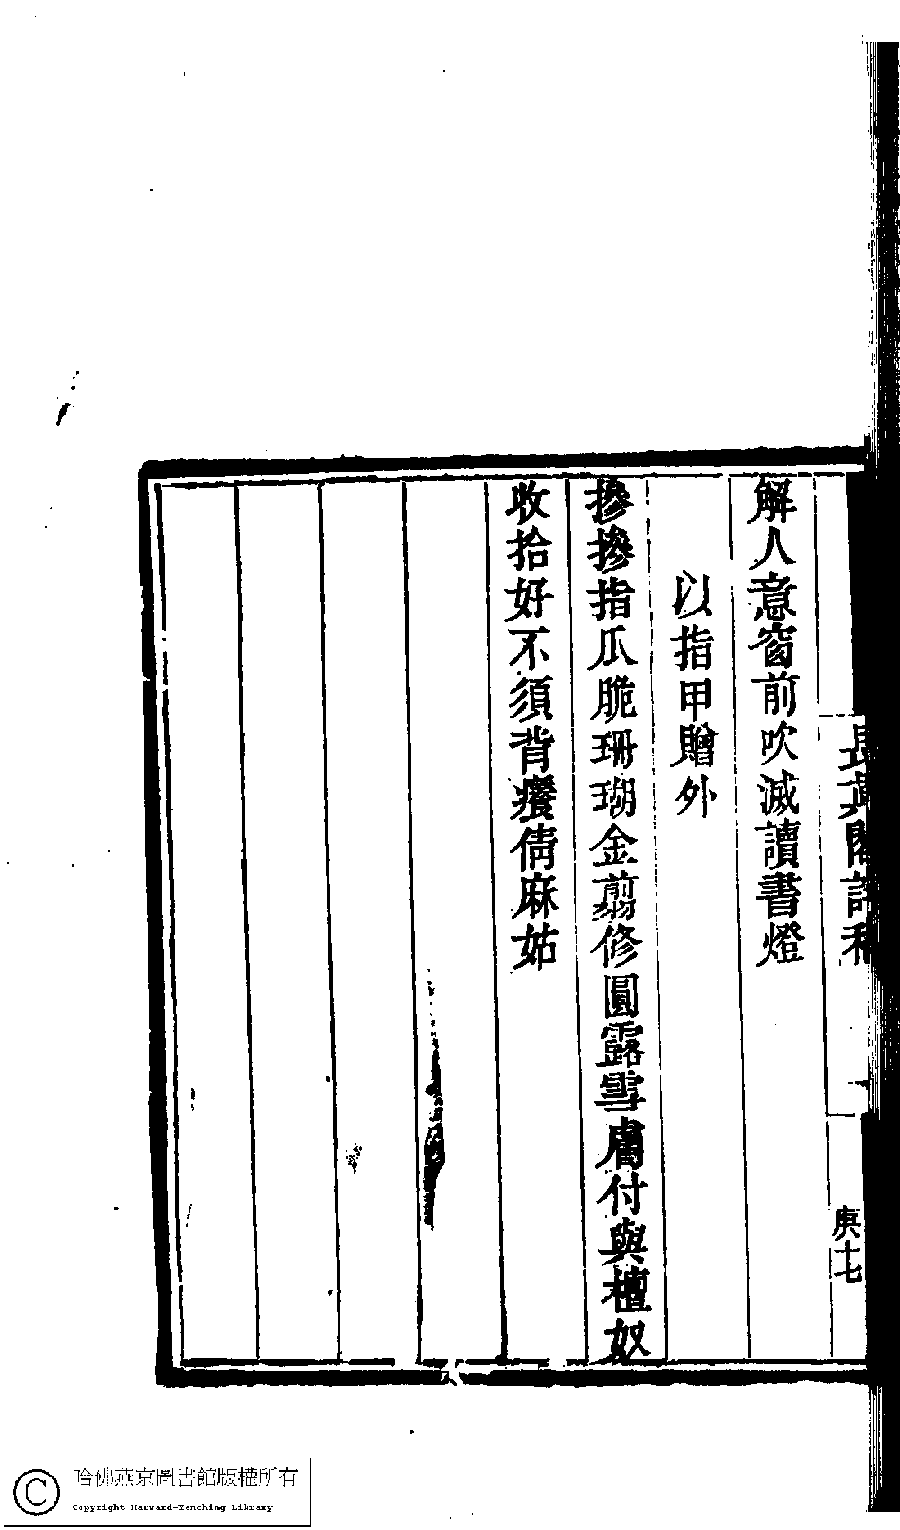 長真閣詩稿
庚十七
解人意窗前吹滅讀書燈
以指甲贈外
摻摻指爪脆珊瑚金翦修圓露雪膚付與檀奴
收拾好不須背癢倩麻姑
哈佛燕京圖書館版權所有
Copyright Harvard-Yenching Library